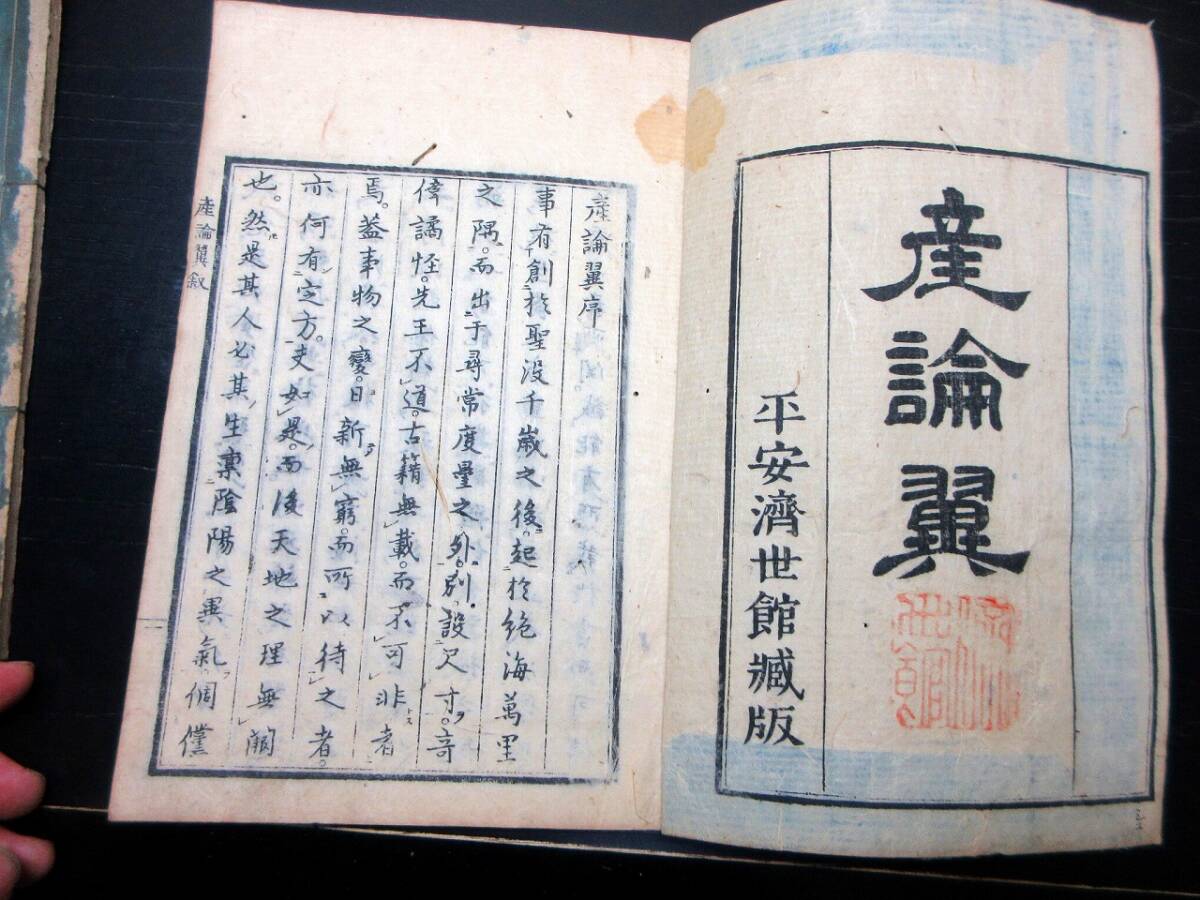 産論翼
平安濟世館藏版
産論翼序
事有創於聖没千歳之後。起於絶海萬里
之隅。而出于尋常度量之外。別設尺寸。奇
偉譎怪。先王不道。古籍無載。而不可非者
焉。蓋事物之變。日新無窮。而所以待之者。
亦何有定方。夫如是。而後天地之理無闕
也。然是其人必其生稟陰陽之異氣。倜儻
産論翼叙
一